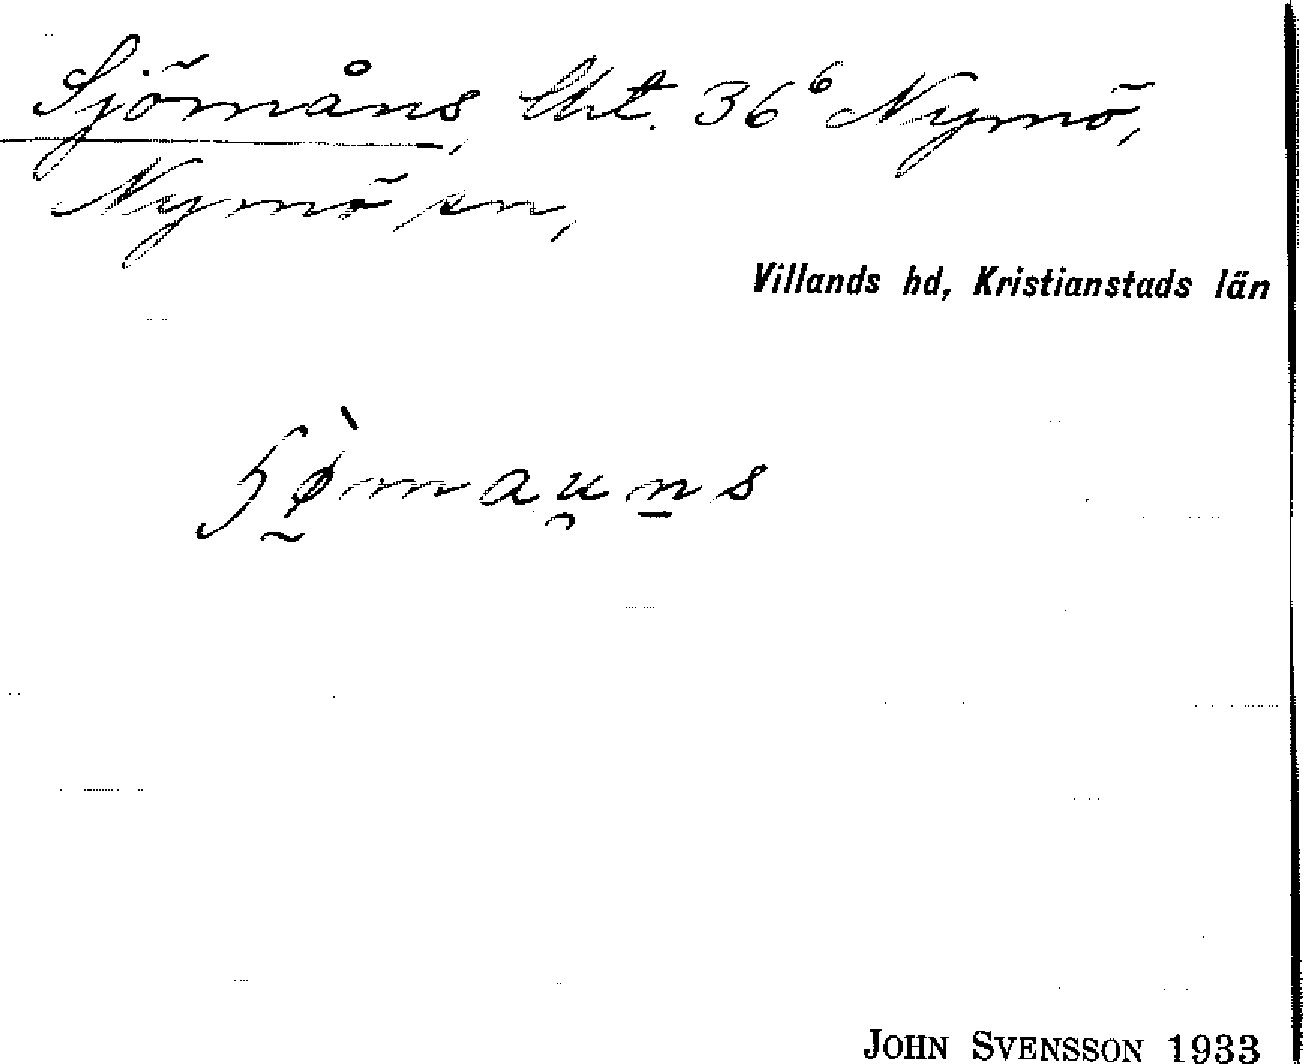 Sjömåns, 36⁶ Nymö,
Nymö sn,
Villands hd, Kristianstads län
JOHN SVENSSON 1933